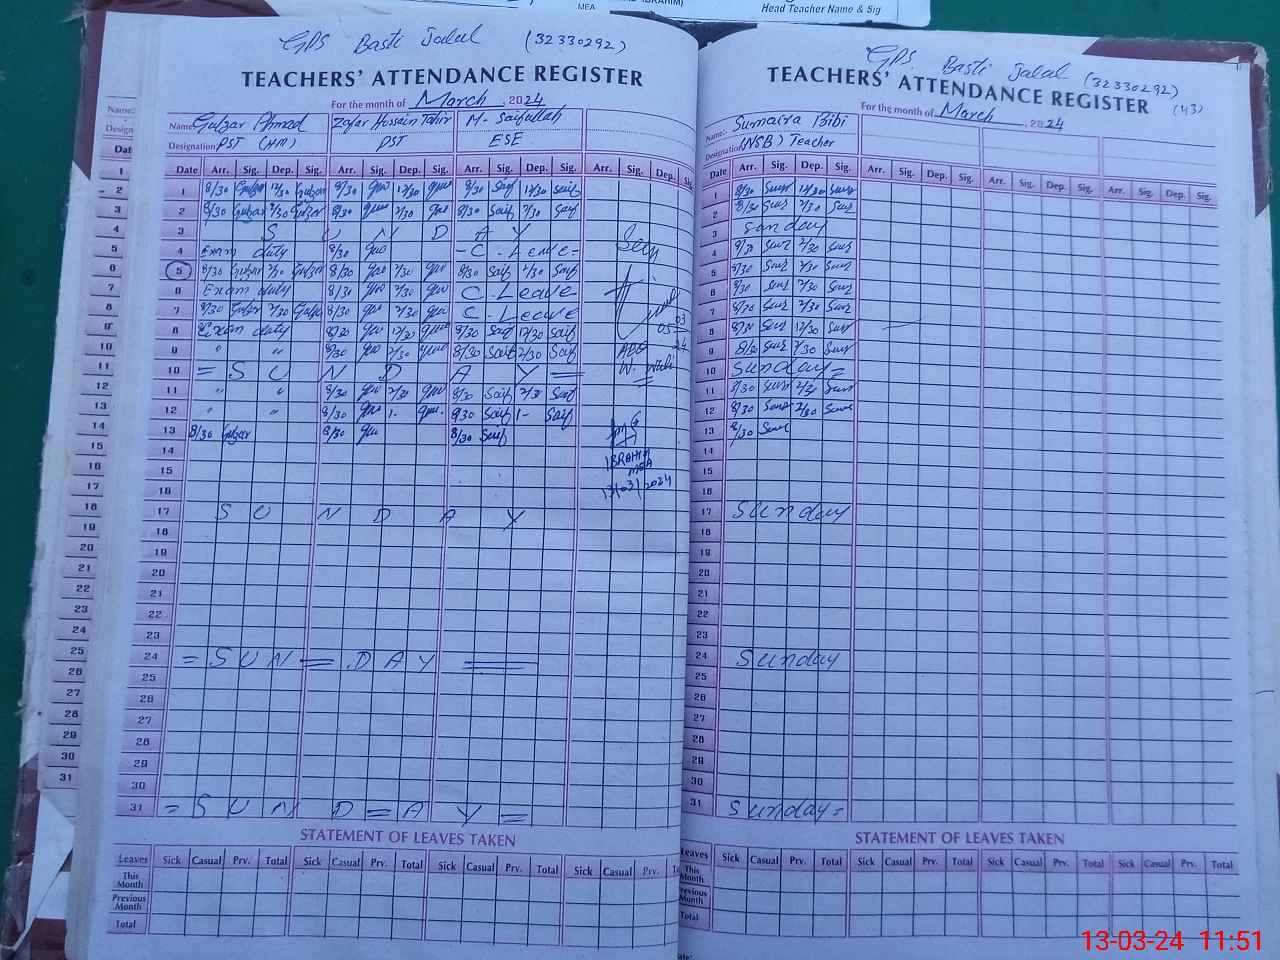 MEA
Head Teacher Name & Sig
GPS Basti Jalal (32330292)
TEACHERS' ATTENDANCE REGISTER
For the month of March, 2024
Name: Gulzar Ahmad Zafar Hussain Tahir M. Saifullah
Designation PST (HM) PST ESE
Date Arr. Sig. Dep. Sig. Arr. Sig. Dep. Sig. Arr. Sig. Dep. Sig. Arr. Sig. Dep. Sig.
1 8/30 Gulzar 12/30 Gulzar 8/30 12/30 8/30 Saif 12/30 Saif
2 8/30 Gulzar 2/30 Gulzar 8/30 2/30 8/30 Saif 2/30 Saif
3 S U N D A Y
4 Exam duty 8/30 - C. Leave -
5 8/30 Gulzar 2/30 Gulzar 8/30 2/30 8/30 Saif 2/30 Saif
6 Exam duty 8/30 2/30 C. Leave
7 8/30 Gulzar 2/30 Gulzar 8/30 2/30 C. Leave
8 Exam duty 8/30 12/30 8/30 Saif 12/30 Saif
9 " " 8/30 2/30 8/30 Saif 2/30 Saif
10 = S U N D A Y =
11 " " 8/30 2/30 8/30 Saif 2/30 Saif
12 " " 8/30 1- 8/30 Saif 1- Saif
13 8/30 Gulzar 8/30 8/30 Saif
14
15
16
17 S U N D A Y
18
19
20
21
22
23
24 = S U N = D A Y =
25
26
27
28
29
30
31 = S U N D = A Y =
05 03 24
IBRAHIM
MEA
13/03/2024
STATEMENT OF LEAVES TAKEN
Leaves Sick Casual Prv. Total Sick Casual Prv. Total Sick Casual Prv. Total Sick Casual Prv.
This Month
Previous Month
Total
GPS Basti Jalal (32330292)
TEACHERS' ATTENDANCE REGISTER (43)
For the month of March, 2024
Name: Sumaira Bibi
Designation (NSB) Teacher
Date Arr. Sig. Dep. Sig. Arr. Sig. Dep. Sig. Arr. Sig. Dep. Sig. Arr. Sig. Dep. Sig.
1 8/30 Sumr 12/30 Sumr
2 8/30 Sumr 2/30 Sumr
3 Sunday
4 8/30 Sumr 2/30 Sumr
5 8/30 Sumr 2/30 Sumr
6 8/30 Sumr 2/30 Sumr
7 8/30 Sumr 2/30 Sumr
8 8/30 Sumr 12/30 Sumr
9 8/30 Sumr 2/30 Sumr
10 Sunday =
11 8/30 Sumr 2/30 Sumr
12 8/30 Sumr 2/30 Sumr
13 8/30 Sumr
14
15
16
17 Sunday
18
19
20
21
22
23
24 Sunday
25
26
27
28
29
30
31 Sunday =
STATEMENT OF LEAVES TAKEN
Leaves Sick Casual Prv. Total Sick Casual Prv. Total Sick Casual Prv. Total Sick Casual Prv. Total
This Month
Previous Month
Total
13-03-24 11:51